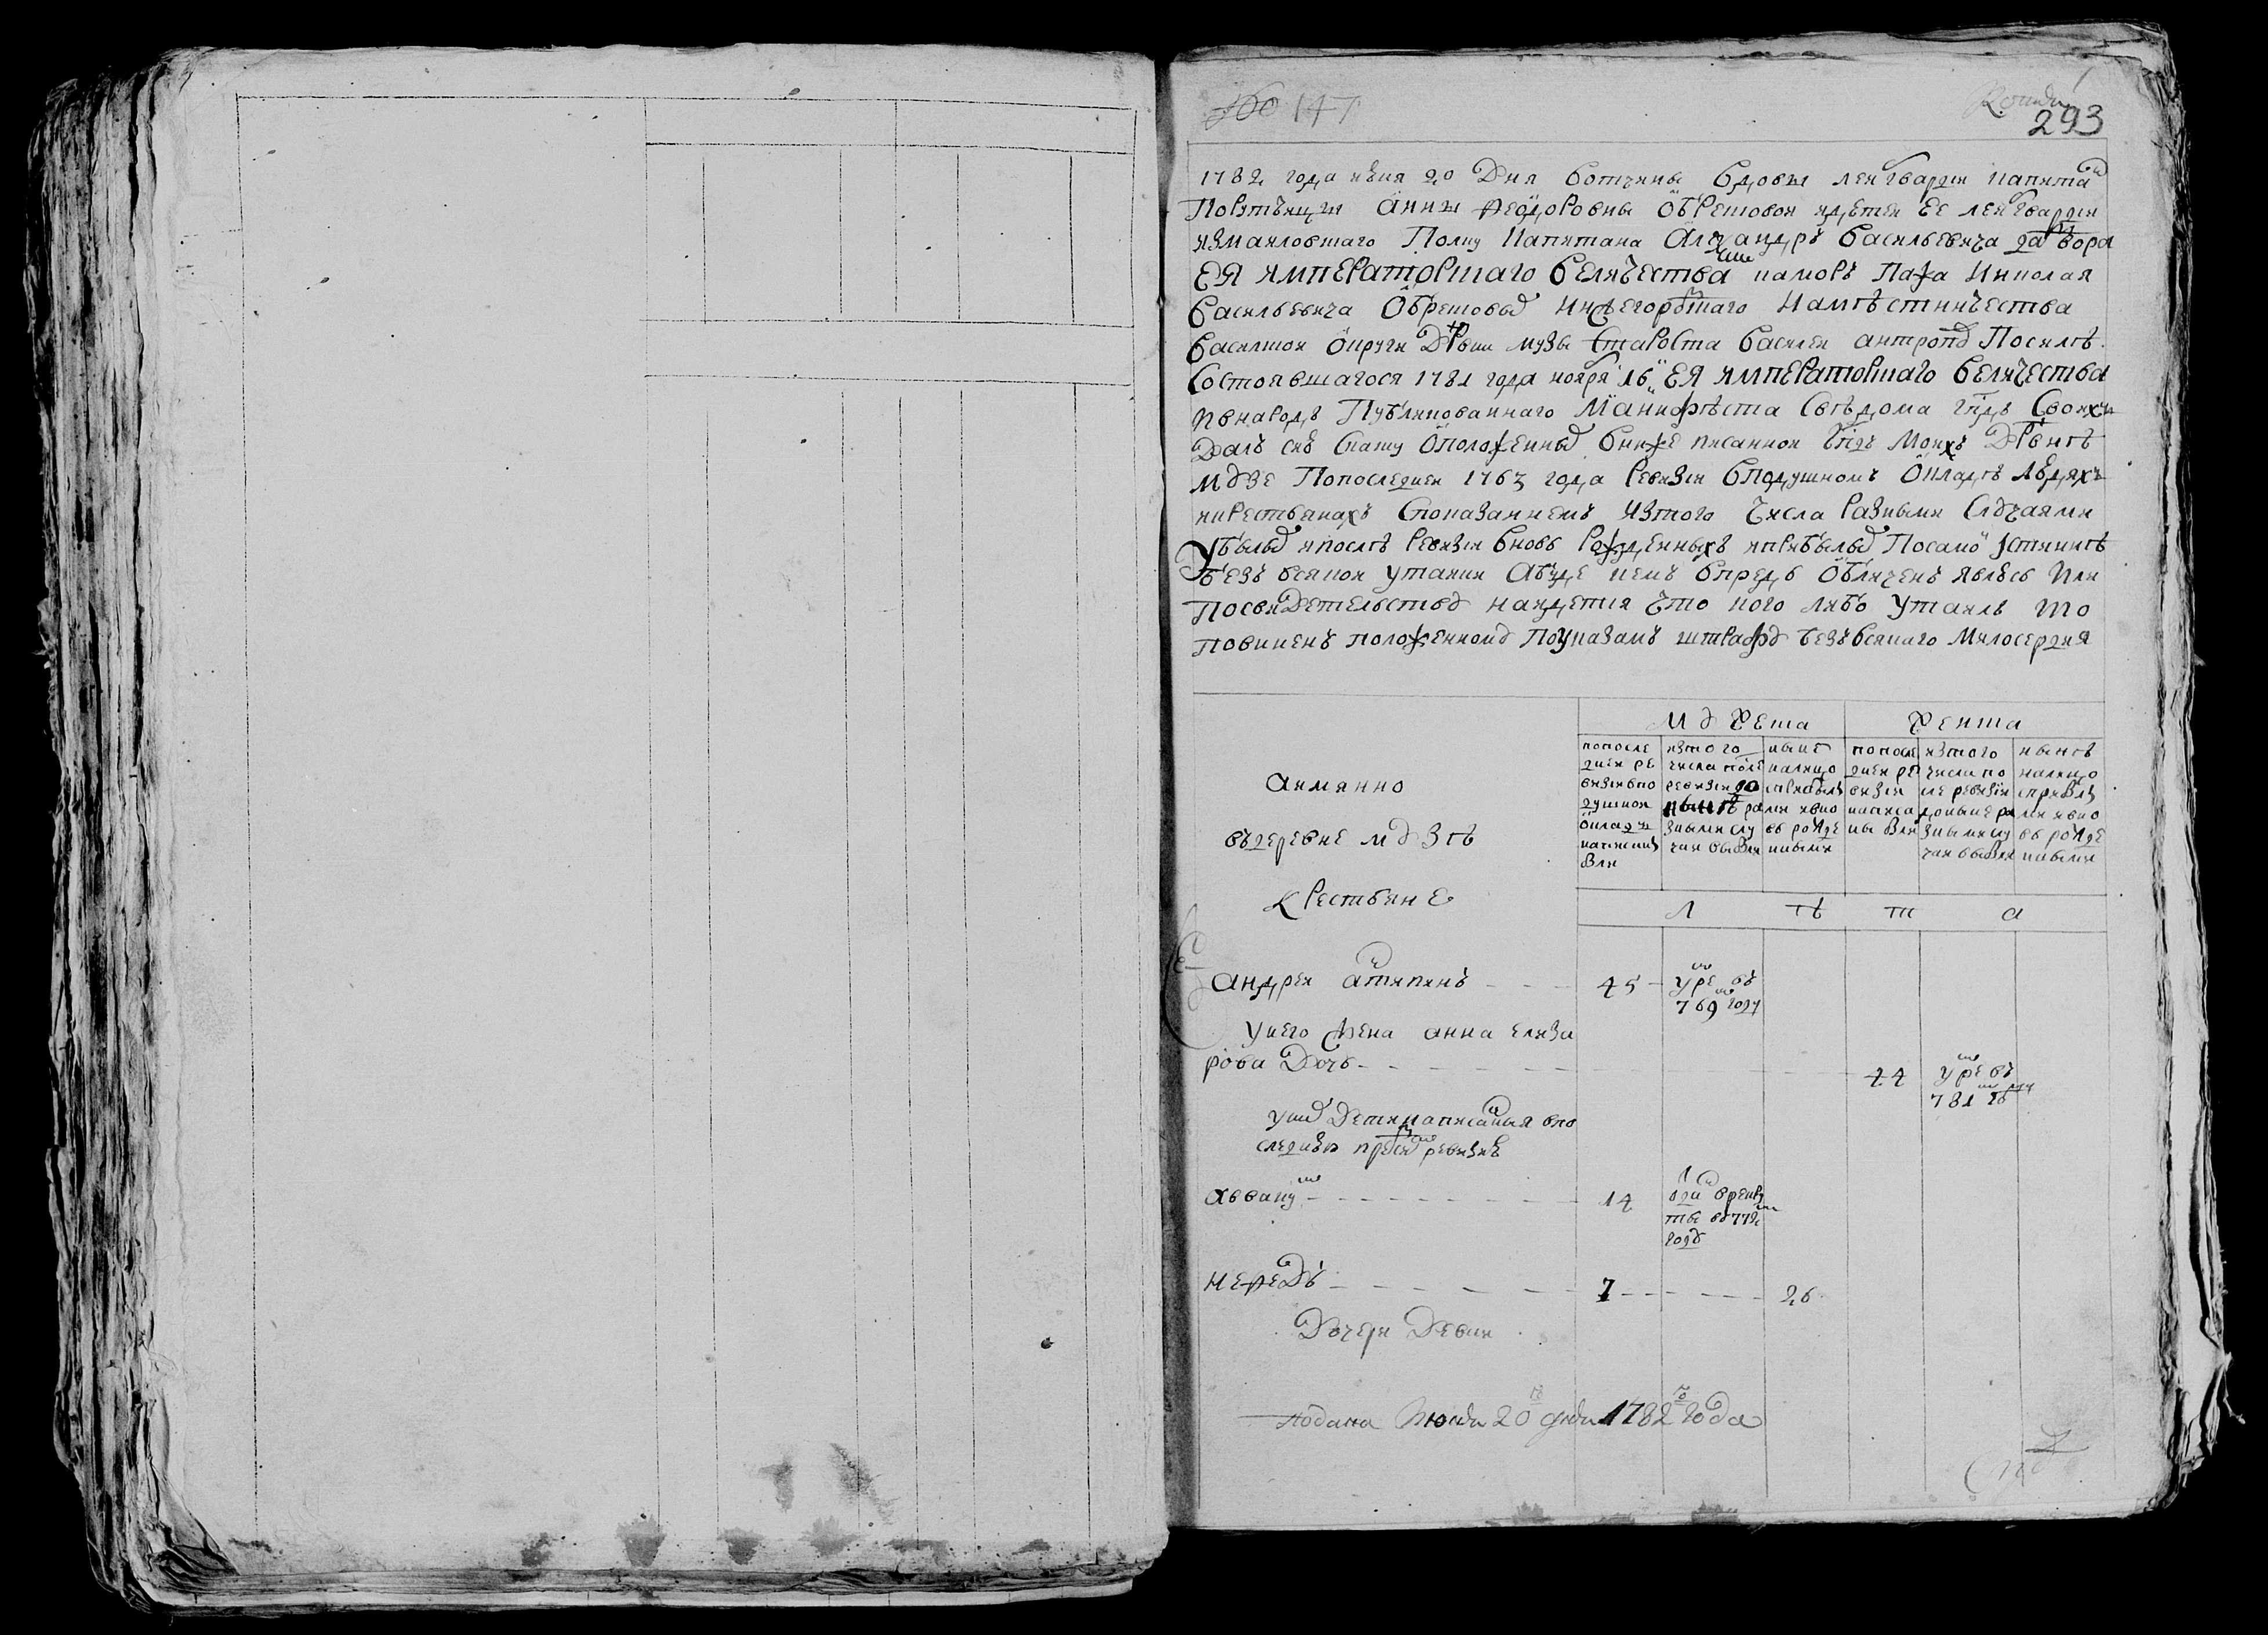 № 147
Копия
293
1782 года июня 20 Дня вотчины вдовы лейгвардии капитан
Порутчицы Анны Феодоровны Обресковой идетей ее лейгвардии
измаиловскаго Полку Капитана Александръ васильевича двора
ЕЯ императорскаго величества камеръ Пажа Николая
васильевича Обрескова Нижегородскаго Намѣстничества
васильской округи Дрвни музы староста василей антропов Посилѣ
состоявшагося 1781 года ноября 16 ЕЯ императорскаго величества
Ивнародъ Публикованнаго Манифѣста свѣдома гпдъ своихъ
Далъ сию скаску оположенных вниже писанной гпдъ моихъ Дрвнѣ
музе Попоследней 1763 года ревизии вподушномъ окладѣ людяхъ
икрестьянахъ споказаниемъ изтого числа разными случаями
убылых ипослѣ ревизии вновь рожденныхъ иприбылых Посамой истиннѣ
безъ всякой утайки Абуде кемъ впредь обличенъ явлюсь или
Посвидетельству найдется что кого либо утаилъ то
повиненъ положенному Поуказамъ штрафу безъвсякаго милосердия
Муżеска
женска
попосле
дней ре
визии впо
душной
окладъ
написан
были
изтого
числа после
ревизии до
нынѣ ра
зными слу
чаи выбыли
нынѣ
налицо
сприбылы
ми ивно
вь рожде
нными
попосле
дней ре
визии
написа
ны были
изтого
числа по
сле ревизии
доныне ра
зными слу
чаи выбыли
нынѣ
налицо
сприбылы
ми ивно
вь рожде
нными
Аимянно
въдеревне музѣ
Крестьяне
л ѣ т а
андрей 45 умре въ
769 году
Унего жена анна елиза
рова Дочь 44 умре въ
781 году
уних Дети написанныя впо
следнюю пред сим ревизию
14 отдан врекру
ты въ 772
году
Нефедъ 7 26
Дочери Девки
подана Июня 20 го дня 1782 го года